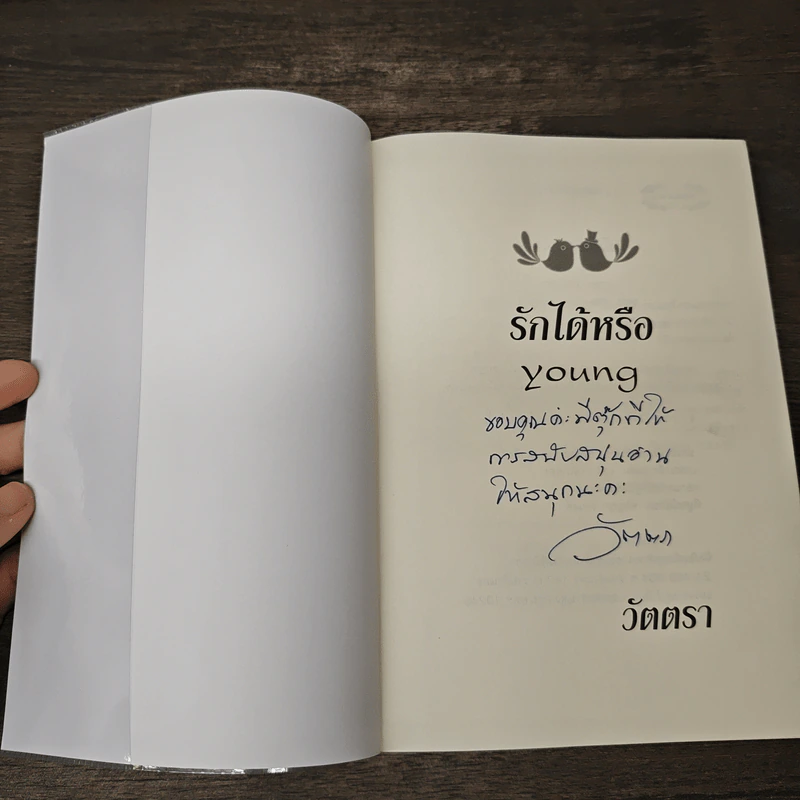 รักได้หรือ
young
ขอบคุณค่ะพี่ตุ๊กที่ให้
การสนับสนุนอ่าน
ให้สนุกนะคะ
วัตตรา
วัตตรา